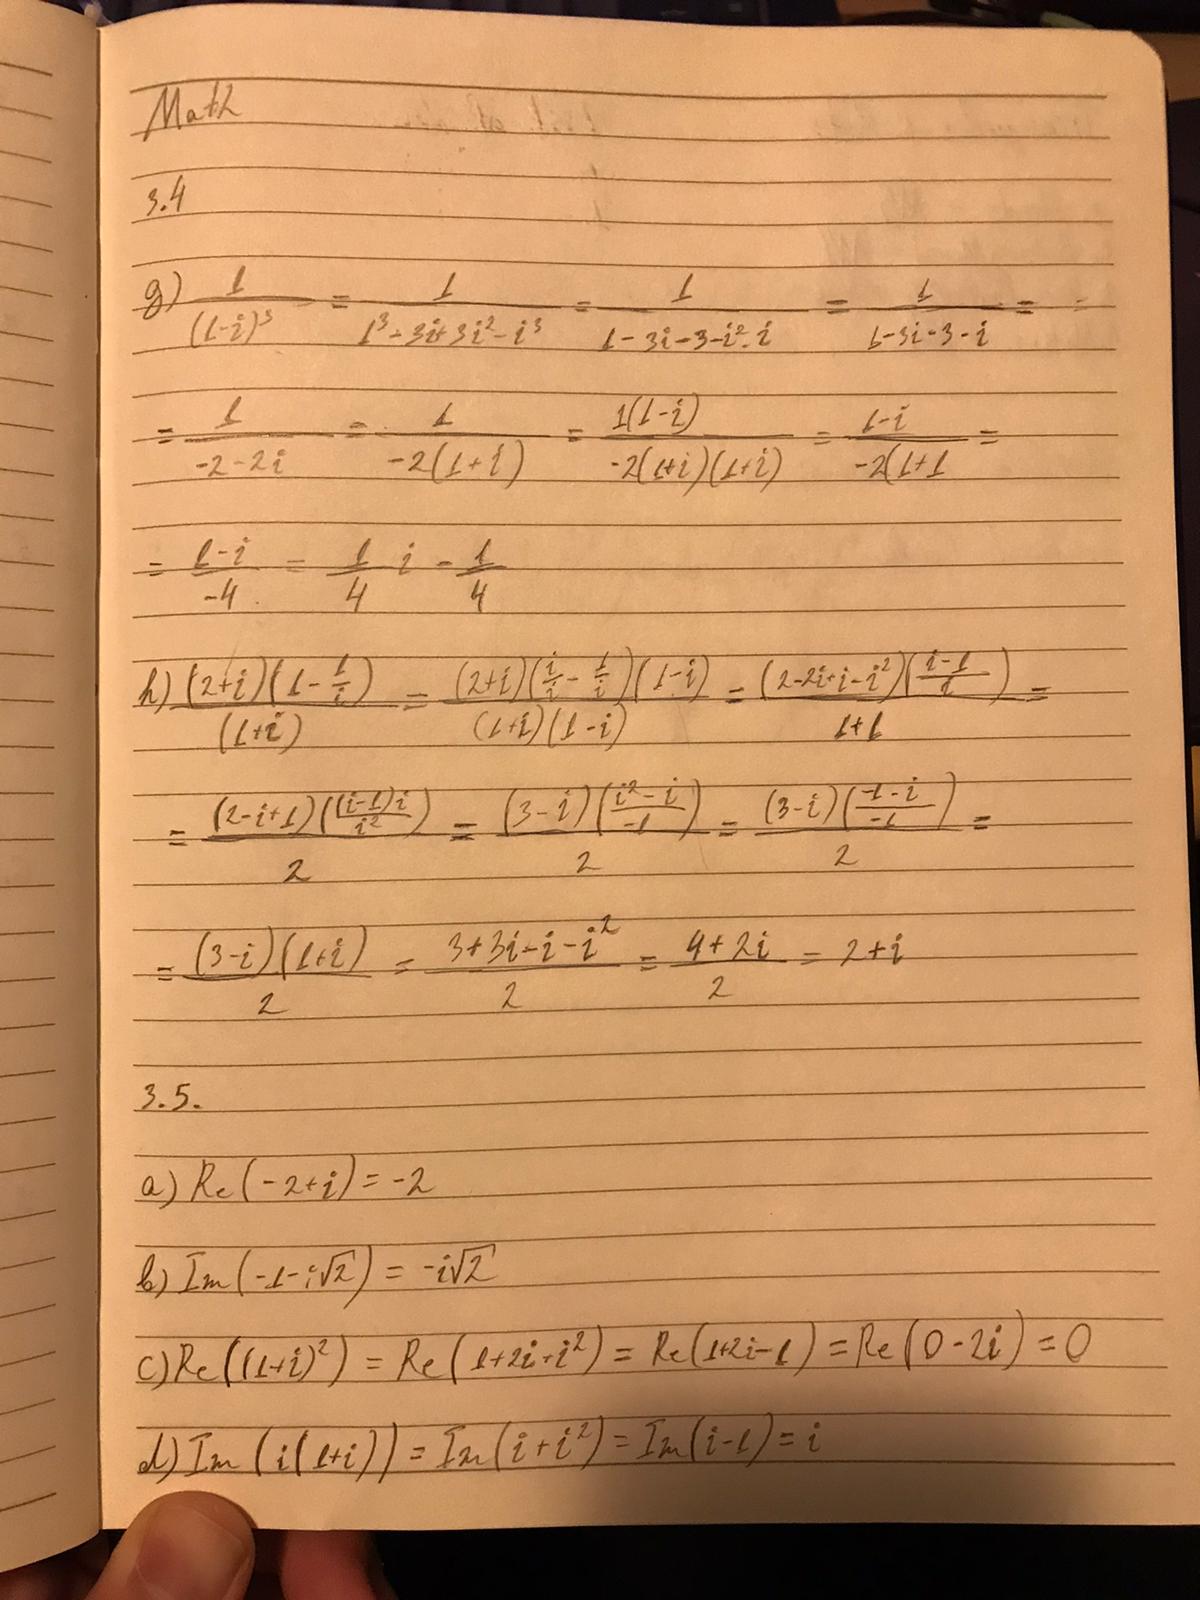 Math
3.4
g) 1/(1-i)³ = 1/(1³-3i+3i²-i³) = 1/(1-3i-3-i²·i) = 1/(1-3i-3-i) =
= 1/(-2-2i) = 1/(-2(1+i)) = 1(1-i)/(-2(1+i)(1+i)) = (1-i)/(-2(1+1 =
= (1-i)/-4 = 1/4 i - 1/4
h) (2+i)(1-1/i)/(1+i) = (2+i)(i/i-1/i)(1-i)/((1+i)(1-i)) = (2-2i+i-i²)((i-1)/i)/(1+1) =
= (2-i+1)((i-1)i/i²)/2 = (3-i)((i²-i)/-1)/2 = (3-i)((-1-i)/-1)/2 =
= (3-i)(1+i)/2 = (3+3i-i-i²)/2 = (4+2i)/2 = 2+i
3.5.
a) Re(-2+i) = -2
b) Im(-1-i√2) = -i√2
c) Re((1+i)²) = Re(1+2i+i²) = Re(1+2i-1) = Re(0-2i) = 0
d) Im(i(1+i)) = Im(i+i²) = Im(i-1) = i